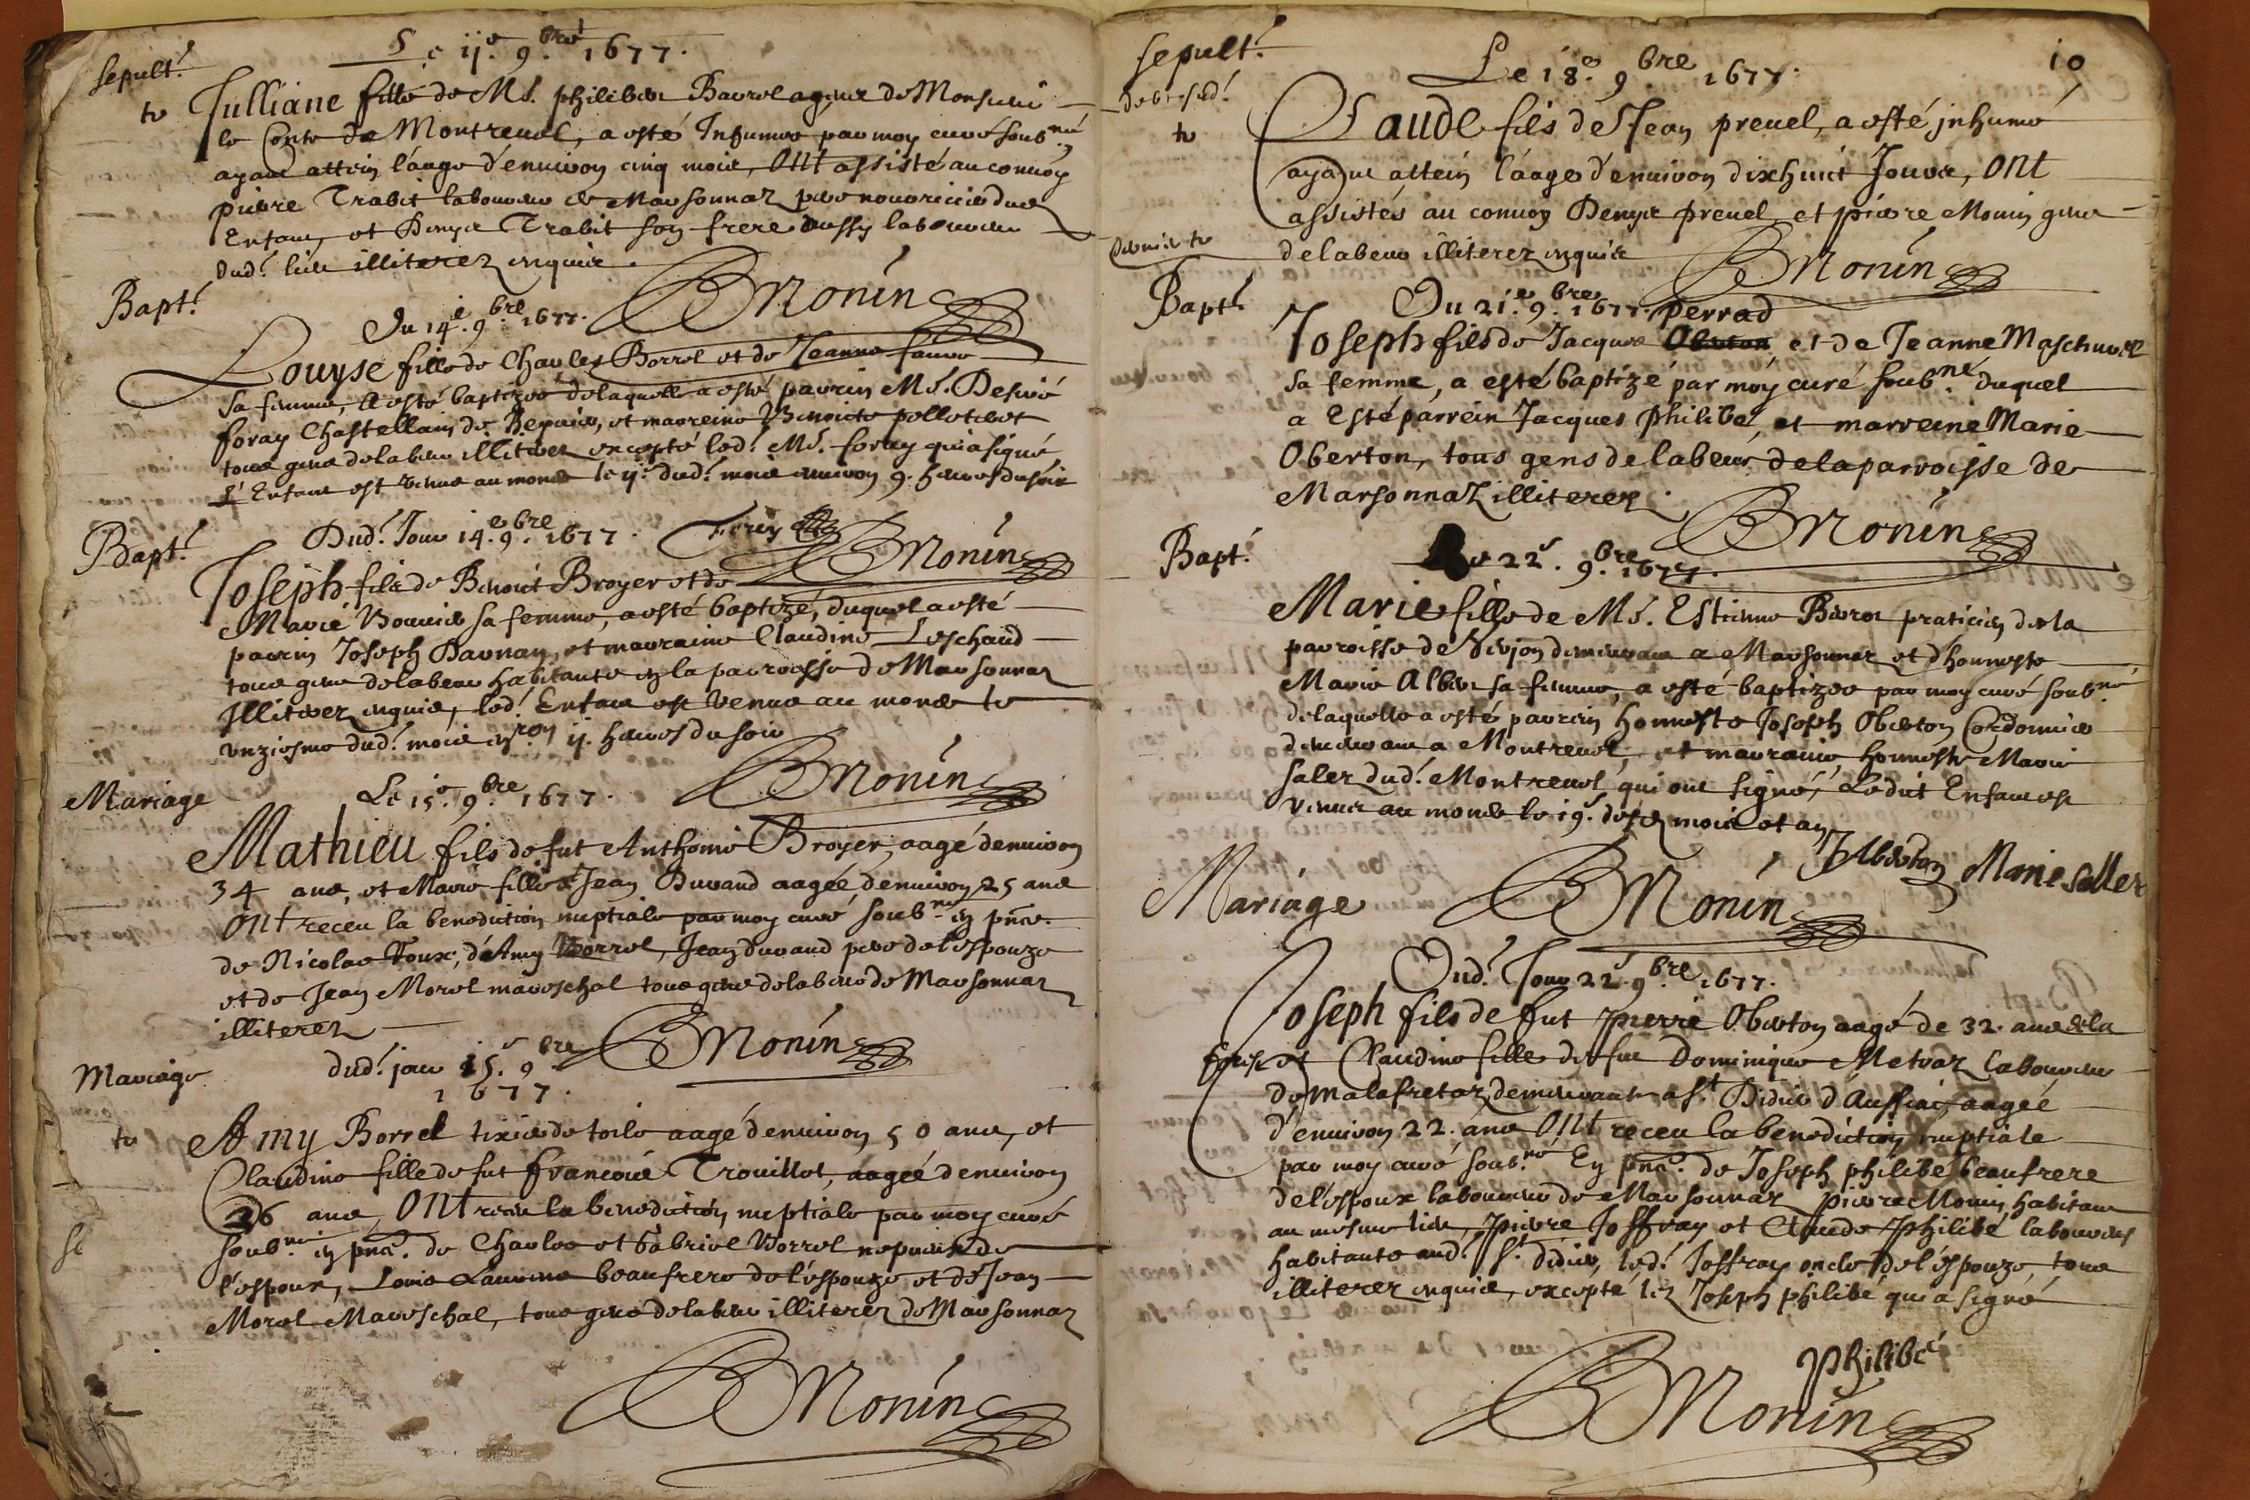 Sepult.
Le ij.e 9.bre 1677.
Julliane fille de Me. philibert Bavrel agent de Monsieur
le Conte de Montrevel, a esté Inhumee par moy curé soub.né
ayant attein l'aage d'environ cinq mois, Ont assisté au convoy
pierre Trabit laboureur de Marsonnaz pere nourricier dud.
Enfant, et Denys Trabit son frere aussy laboureur
dud. lieu illiterez enquis.
BMonin
Bapt.
Du 14.e 9.bre 1677.
Louyse fille de Charles Borrel et de Jeanne faure
sa femme, A esté baptizée de laquelle a esté parrin Me. Desiré
foray Chastellain de Bepair, et marreine Benoicte pellotier
tous gens de labeur illiterez excepté led. Me. foray qui a signé
l'Enfant est venue au monde le ij. dud. mois environ 9. heures du soir
Forey
BMonin
Bapt.
Dud. Jour 14.e 9.bre 1677.
Joseph fils de Benoict Broyer et de
Marie Bouvier sa femme, a esté baptizé, duquel a esté
parrin Joseph Daunan, et marraine Claudine Leschaud
tous gens de labeur habitants en la parroisse de Marsonnaz
Illiterez enquis, led. Enfant est venue au monde le
unziesme dud. mois environ ij. heures du soir
BMonin
Mariage
Le 15.e 9.bre 1677.
Mathieu fils de fut Anthoine Broyer, aagé d'environ
34 ans, et Marie fille de Jean Durand aagée d'environ 25 ans
Ont receu la benediction nuptiale par moy curé soub.né en pñce.
de Nicolas Roux, d'Amy Borrel, Jean Durand pere de l'espouze
et de Jean Morel mareschal tous gens de labeur de Marsonnaz
illiterez
BMonin
Mariage
dud. jour 15.e 9.bre
1677.
Amy Borrel tixier de toile aagé d'environ 50 ans, et
Claudine fille de fut francois Trouillot, aagée d'environ
26 ans, Ont receu la benediction nuptiale par moy curé
soub.né en pñce. de Charles et Gabriel Borrel nepveux de
l'espoux, Louis Laurens beaufrere de l'espouze et de Jean
Morel Mareschal, tous gens de labeur illiterez de Marsonnaz
BMonin
10
Sepult.
Le 18.e 9.bre 1677.
Claude fils de Jean prevel, a esté jnhumé
ayant attein l'aage d'environ dixhuict Jours, Ont
assistés au convoy Denys prevel, et pierre Monin gens
de labeur illiterez enquis
BMonin
Bapt.
Du 21.e 9.bre 1677.
perrad
Joseph fils de Jacques Oberton et de Jeanne Maschurel
sa femme, a esté baptizé par moy curé soub.né duquel
a Esté parrein Jacques Philibé, et marreine Marie
Oberton, tous gens de labeur de la parroisse de
Marsonnaz illiterez.
BMonin
Bapt.
Le 22.e 9.bre 1677.
Marie fille de Me. Estienne praticien de la
parroisse de demeurant a Marsonnaz et d'honneste
Marie Albert sa femme, a esté baptizée par moy curé soub.né
de laquelle a esté parrein honneste Joseph Oberton Cordonnier
demeurant a Montrevel, et marraine honneste Marie
saler dud. Montrevel, qui ont signé, Ledict Enfant est
venue au monde le 19.e desd. mois et an
JOberton Marie saller
BMonin
Mariage
Dud. Jour 22.e 9.bre 1677.
Joseph fils de fut Pierre Oberton aagé de 32. ans de la
et Claudine fille de fut Dominique Metraz laboureur
de Malafretaz, demeurant a St. Didier d'Aussiat, aagée
d'environ 22. ans Ont receu la benediction nuptiale
par moy curé soub.né En pñce. de Joseph philibé beaufrere
de l'espoux laboureur de Marsonnaz, pierre Monin habitant
au mesme lieu, Pierre Joffray et Claude Philibé laboureurs
habitants aud. St. didier, led. Joffray oncle de l'espouze, tous
illiterez enquis, excepté lez Joseph philibé qui a signé
Philibé
BMonin